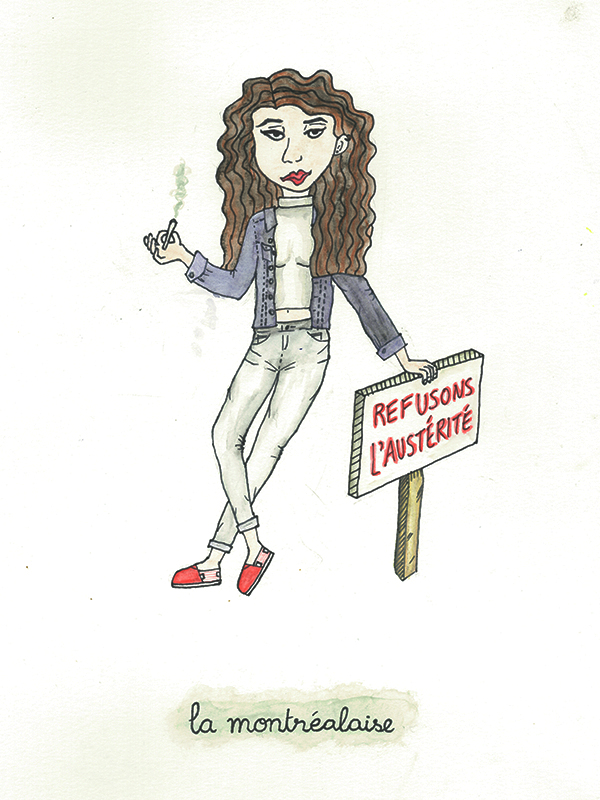 REFUSONS
L'AUSTÉRITÉ
la montréalaise